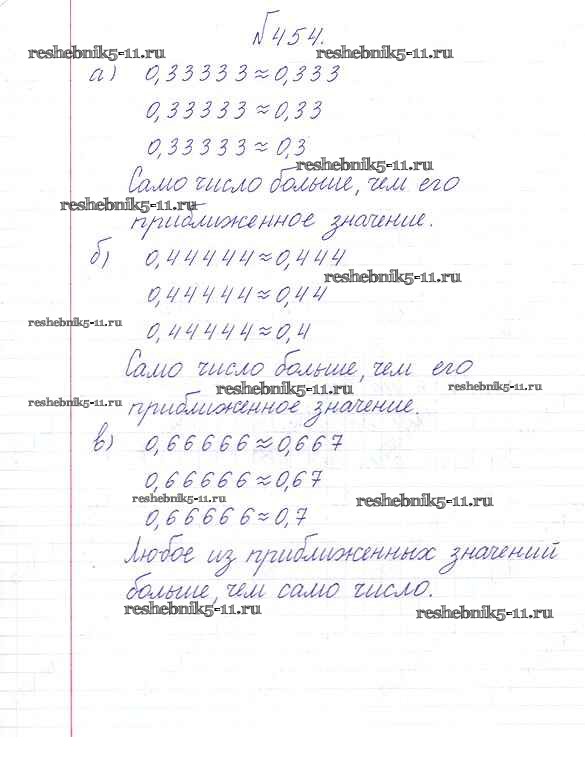 №454.
reshebnik5-11.ru reshebnik5-11.ru
а) 0,33333≈0,333
0,33333≈0,33
0,33333≈0,3
reshebnik5-11.ru
Само число больше, чем его
reshebnik5-11.ru
приближенное значение.
б) 0,44444≈0,444
reshebnik5-11.ru
0,44444≈0,44
reshebnik5-11.ru
0,44444≈0,4
Само число больше, чем его
reshebnik5-11.ru reshebnik5-11.ru
reshebnik5-11.ru
приближенное значение.
в) 0,66666≈0,667
0,66666≈0,67
reshebnik5-11.ru reshebnik5-11.ru
0,66666≈0,7
Любое из приближенных значений
больше, чем само число.
reshebnik5-11.ru reshebnik5-11.ru